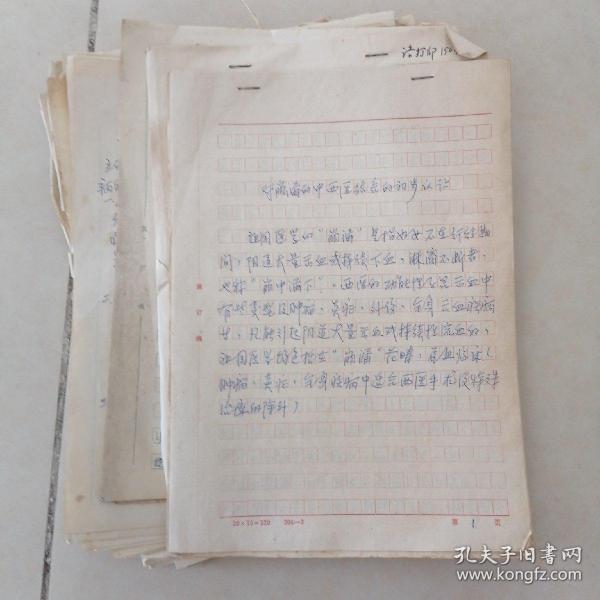 请打印150
对崩漏的中西医结合的初步认识
祖国医学的“崩漏”是指妇女不在行经期
间,阴道大量出血或持续下血,淋漓不断者,
又称“崩中漏下”。西医的功能性子宫出血中
有些类型及肿瘤、炎症、外伤、全身出血性疾病
等,凡能引起阴道大量出血或持续性流血的,
祖国医学均包括在“崩漏”范畴,
肿瘤、炎症、全身性疾病中适应西医手术及特殊
治疗的除外)
装
订
线
20×16=320
第 1 页
孔夫子旧书网
www.kongfz.com